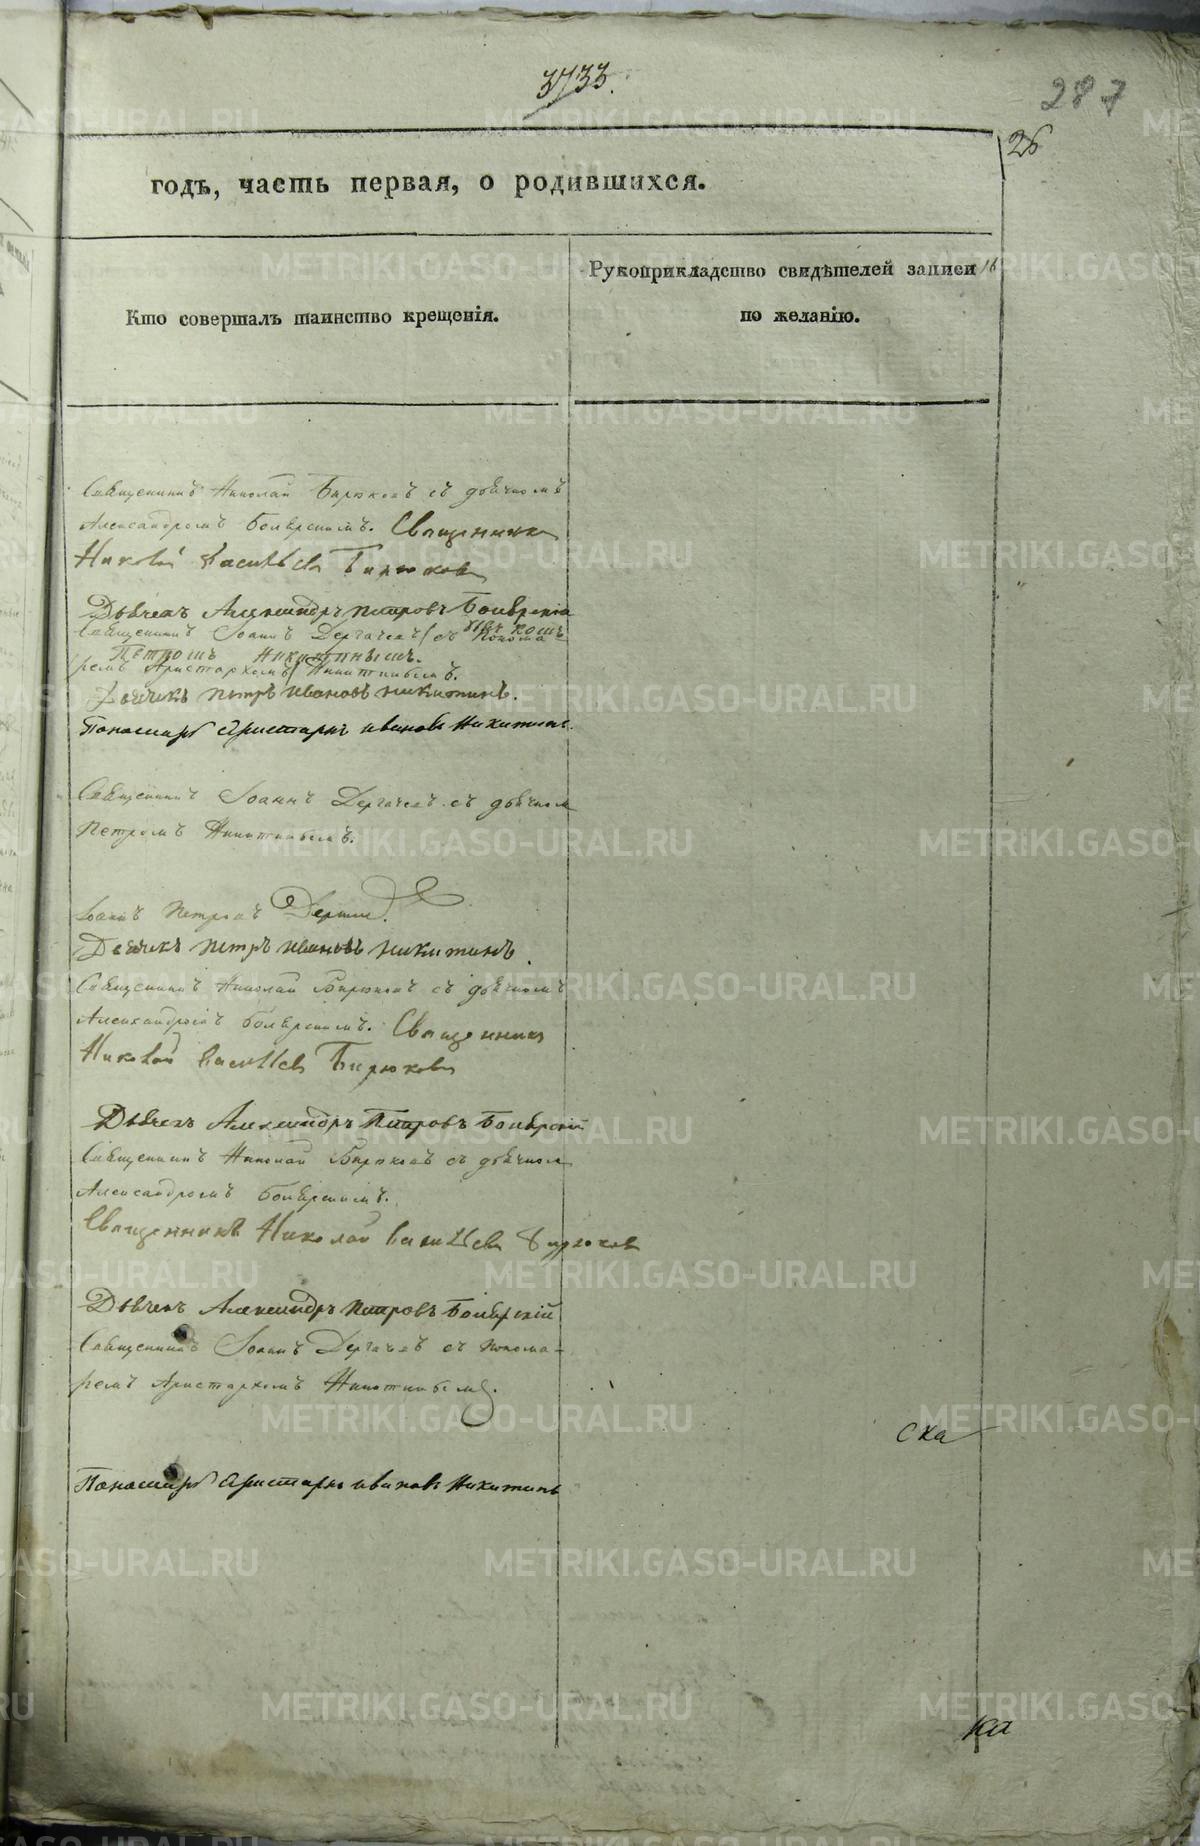 3733.
287
26
годъ, часть первая, о родившихся.
Кто совершалъ таинство крещенія.
Рукоприкладство свидѣтелей записи
16
по желанію.
Священникъ Николай Бирюковъ съ дьячкомъ
Александромъ Боярскимъ. Священникъ
Николай Васильевъ Бирюковъ
Дьячекъ Александръ Петровъ Боярскій
Священникъ Іоаннъ Дергачевъ съ понома-
Петромъ Никитинымъ.
ремъ Аристархомъ Никитинымъ.
Дьячекъ Петръ Ивановъ Никитинъ.
Пономарь Аристархъ Ивановъ Никитинъ.
Священникъ Іоаннъ Дергачевъ съ дьячком
Петромъ Никитинымъ.
Іоаннъ Петровъ
Дьячекъ Петръ Ивановъ Никитинъ.
Священникъ Николай Бирюковъ съ дьячкомъ
Александромъ Боярскимъ. Священникъ
Николай Васильевъ Бирюковъ
Дьячекъ Александръ Петровъ Боярскій
Священникъ Николай Бирюковъ съ дьячком
Александромъ Боярскимъ.
Священникъ Николай Васильевъ Бирюковъ
Дьячекъ Александръ Петровъ Боярскій
Священникъ Іоаннъ Дергачевъ съ понома-
ремъ Аристархомъ Никитинымъ.
ска
Пономарь Аристархъ Ивановъ Никитинъ
ка
METRIKI.GASO-URAL.RU